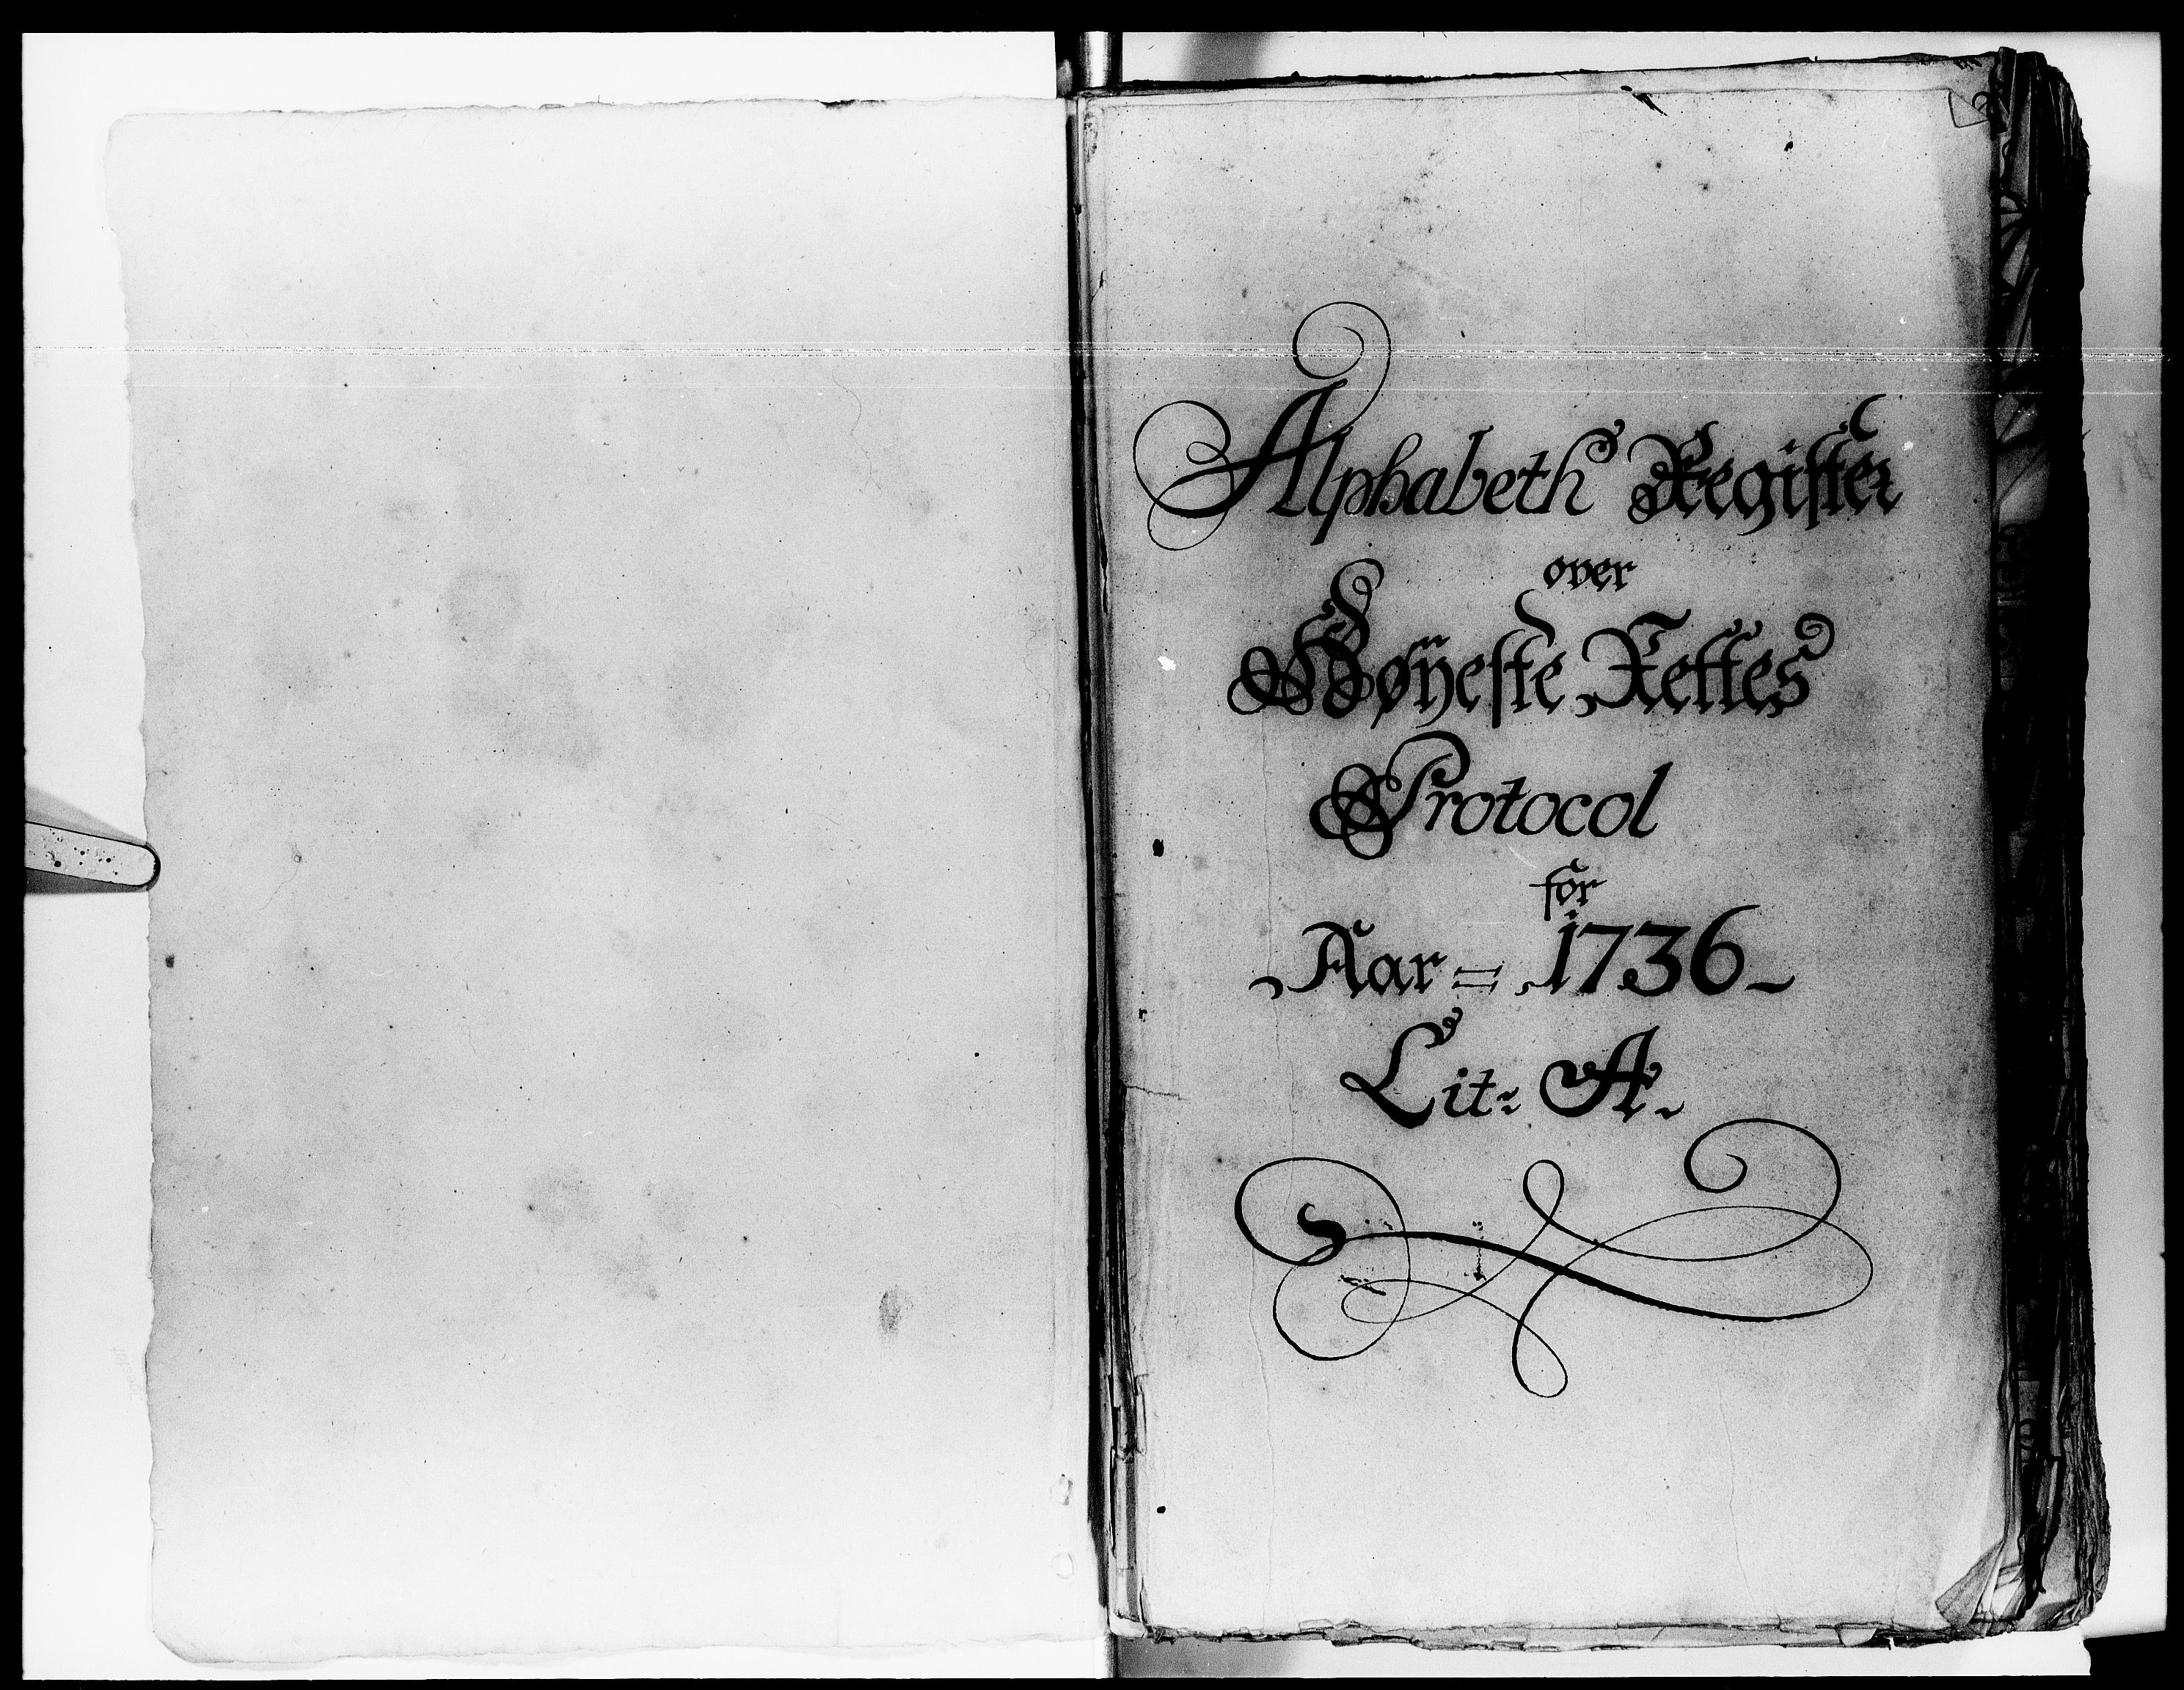 Alphabeth Register
over
Høÿeste Rettes
Protocol
for
Aar = 1736
Lit: A.